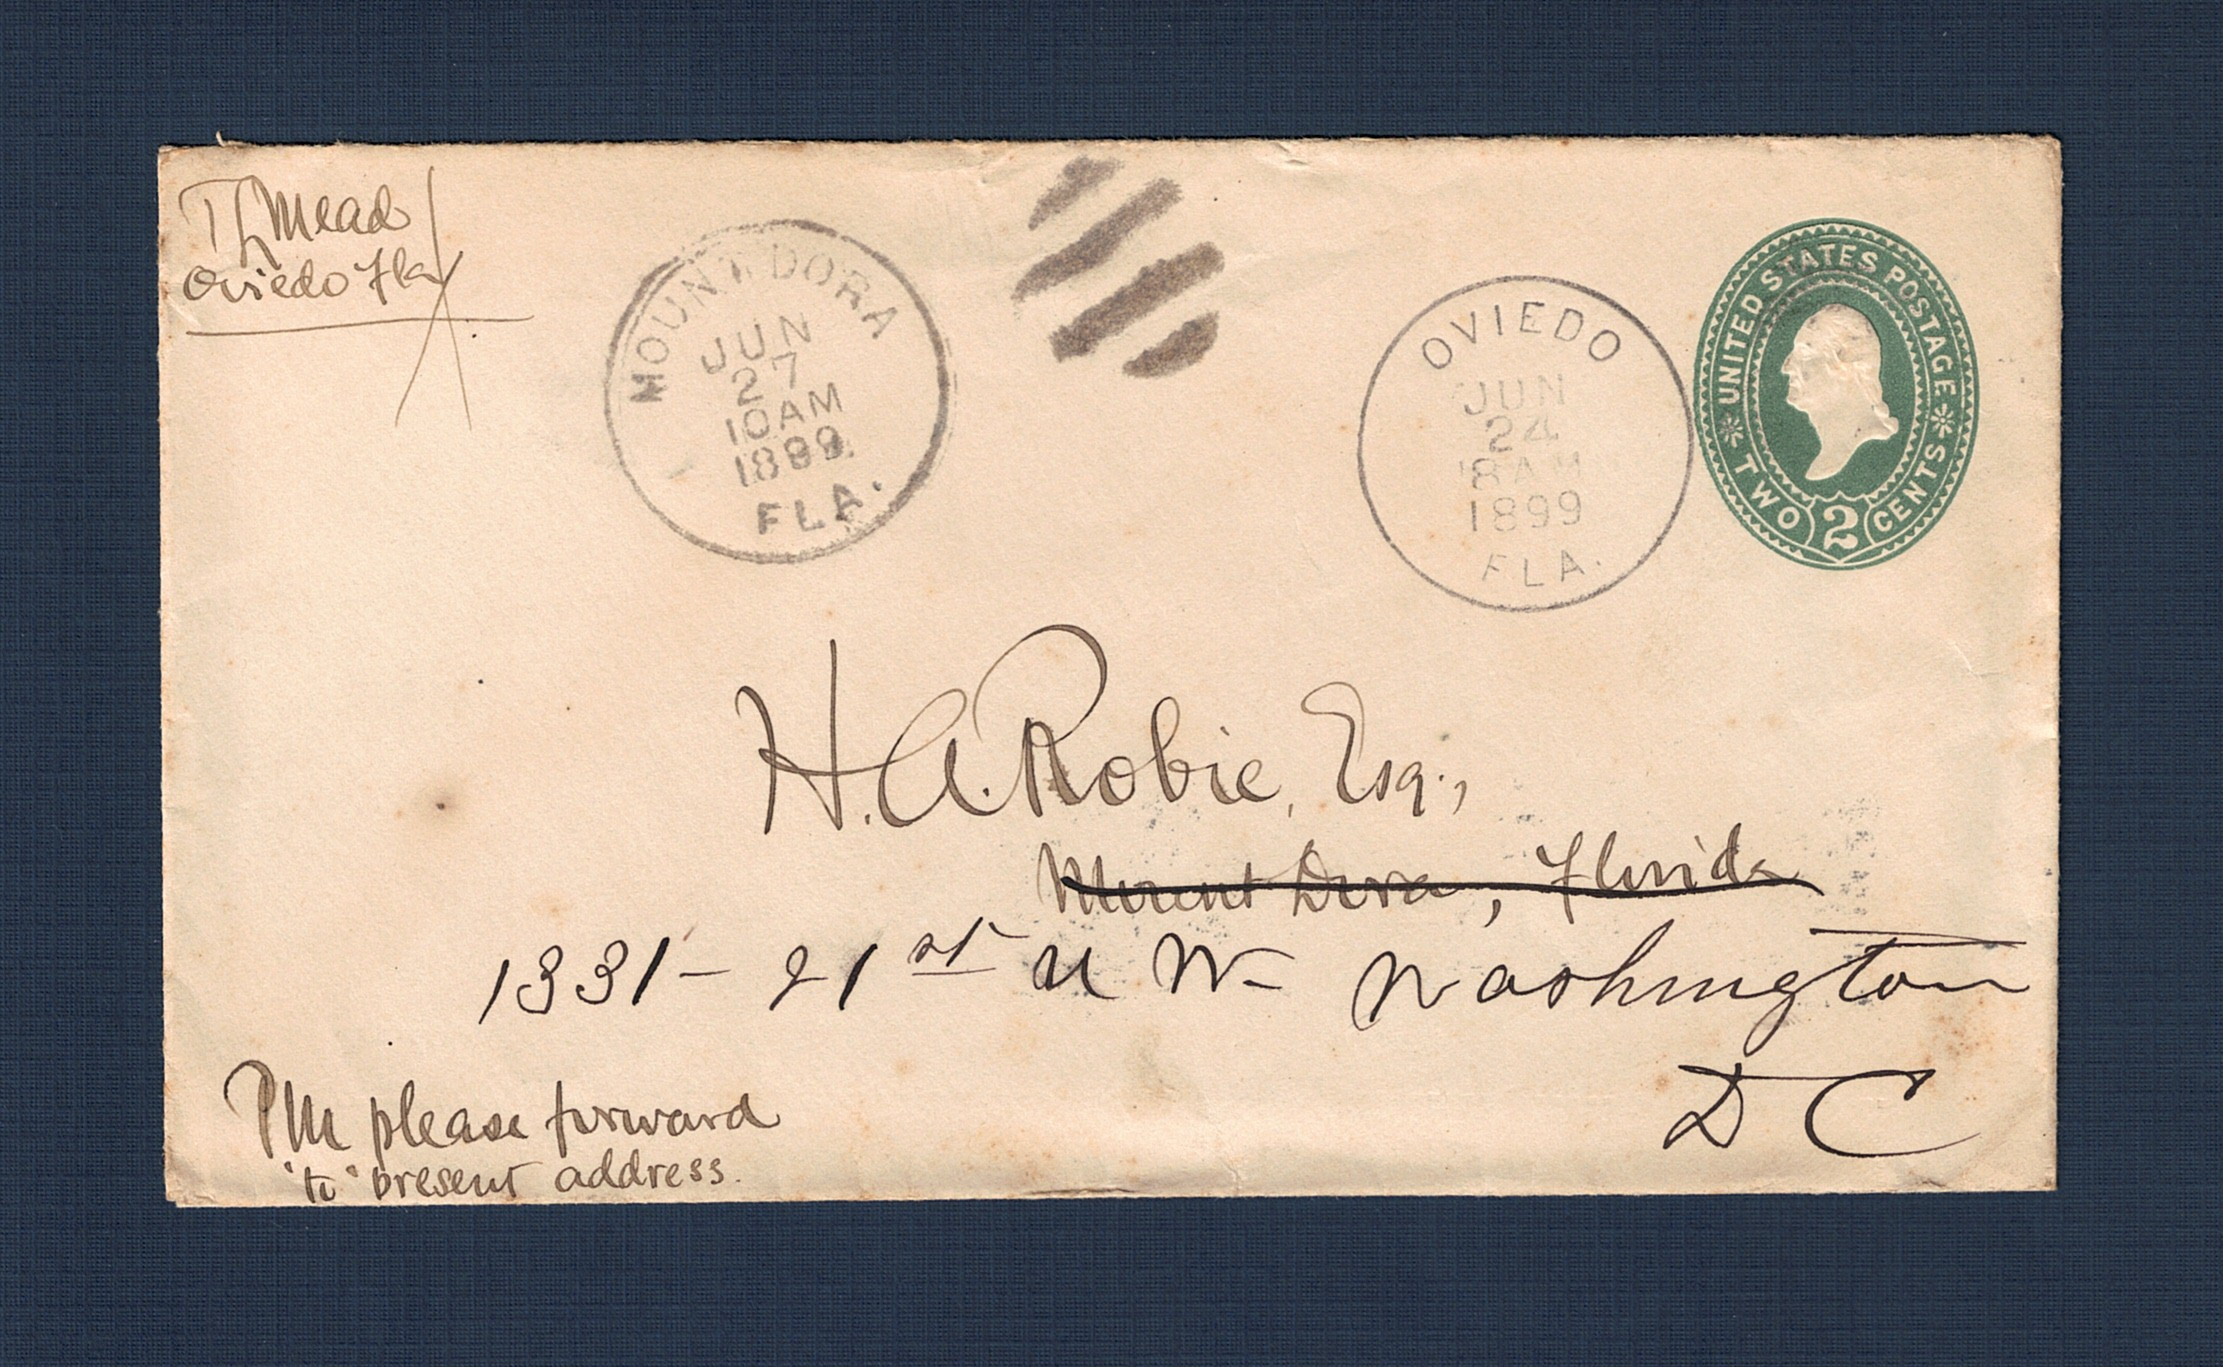 TL Mead
Oviedo Fla
MOUNT DORA
JUN
27
10AM
1899
FLA.
OVIEDO
JUN
24
8 AM
1899
FLA.
UNITED STATES POSTAGE
TWO 2 CENTS
H. A. Robie, Esq.,
Mount Dora, Florida
1331 - 21st N W - Washington
D C
PM please forward
"to" present address.